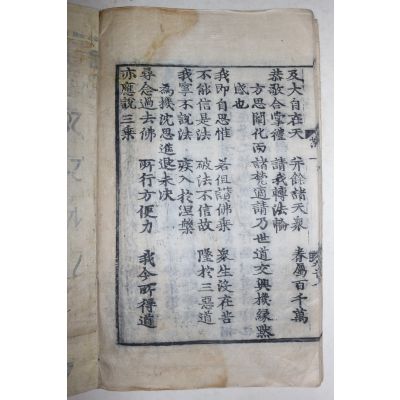 及大自在天 并餘諸天衆 眷屬百千萬
恭敬合掌禮 請我轉法輪
方思開化而諸梵適請乃世道交興機緣黙
感也
我即自思惟 若但讚佛乘 衆生没在苦
不能信是法 破法不信故 墜於三惡道
我寧不說法 疾入於涅槃
爲機沈思進退未決
尋念過去佛 所行方便力 我今所得道
亦應說三乘